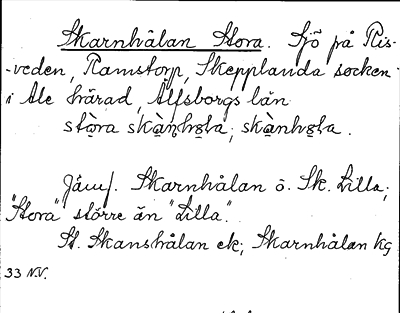 Skarnhålan Stora. Sjö på Ris-
-veden, Ramstorp, Skepplanda socken
i Ale härad, Älfsborgs län
Jämf. Skarnhålan ö. Sk. Lilla;
"Stora" större än "Lilla".
St. Skanshålan ek; Skarnhålan kg
33 N.V.